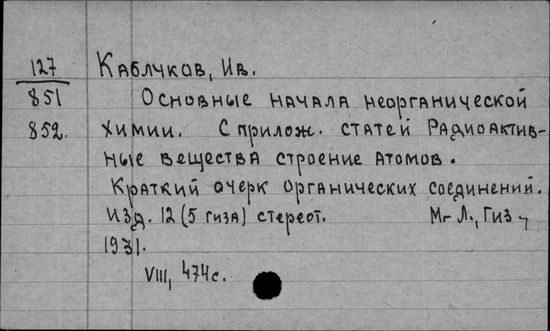 127 Каблчков, Ив.
851 Основные начала неорганической
852. химии. С прилож. статей Радиоактив-
ные вещества строение атомов.
Краткий очерк органических соединений.
Изд. 12 (5 гиза) стереот. М-Л., Гиз,
1931.
VIII, 474с.